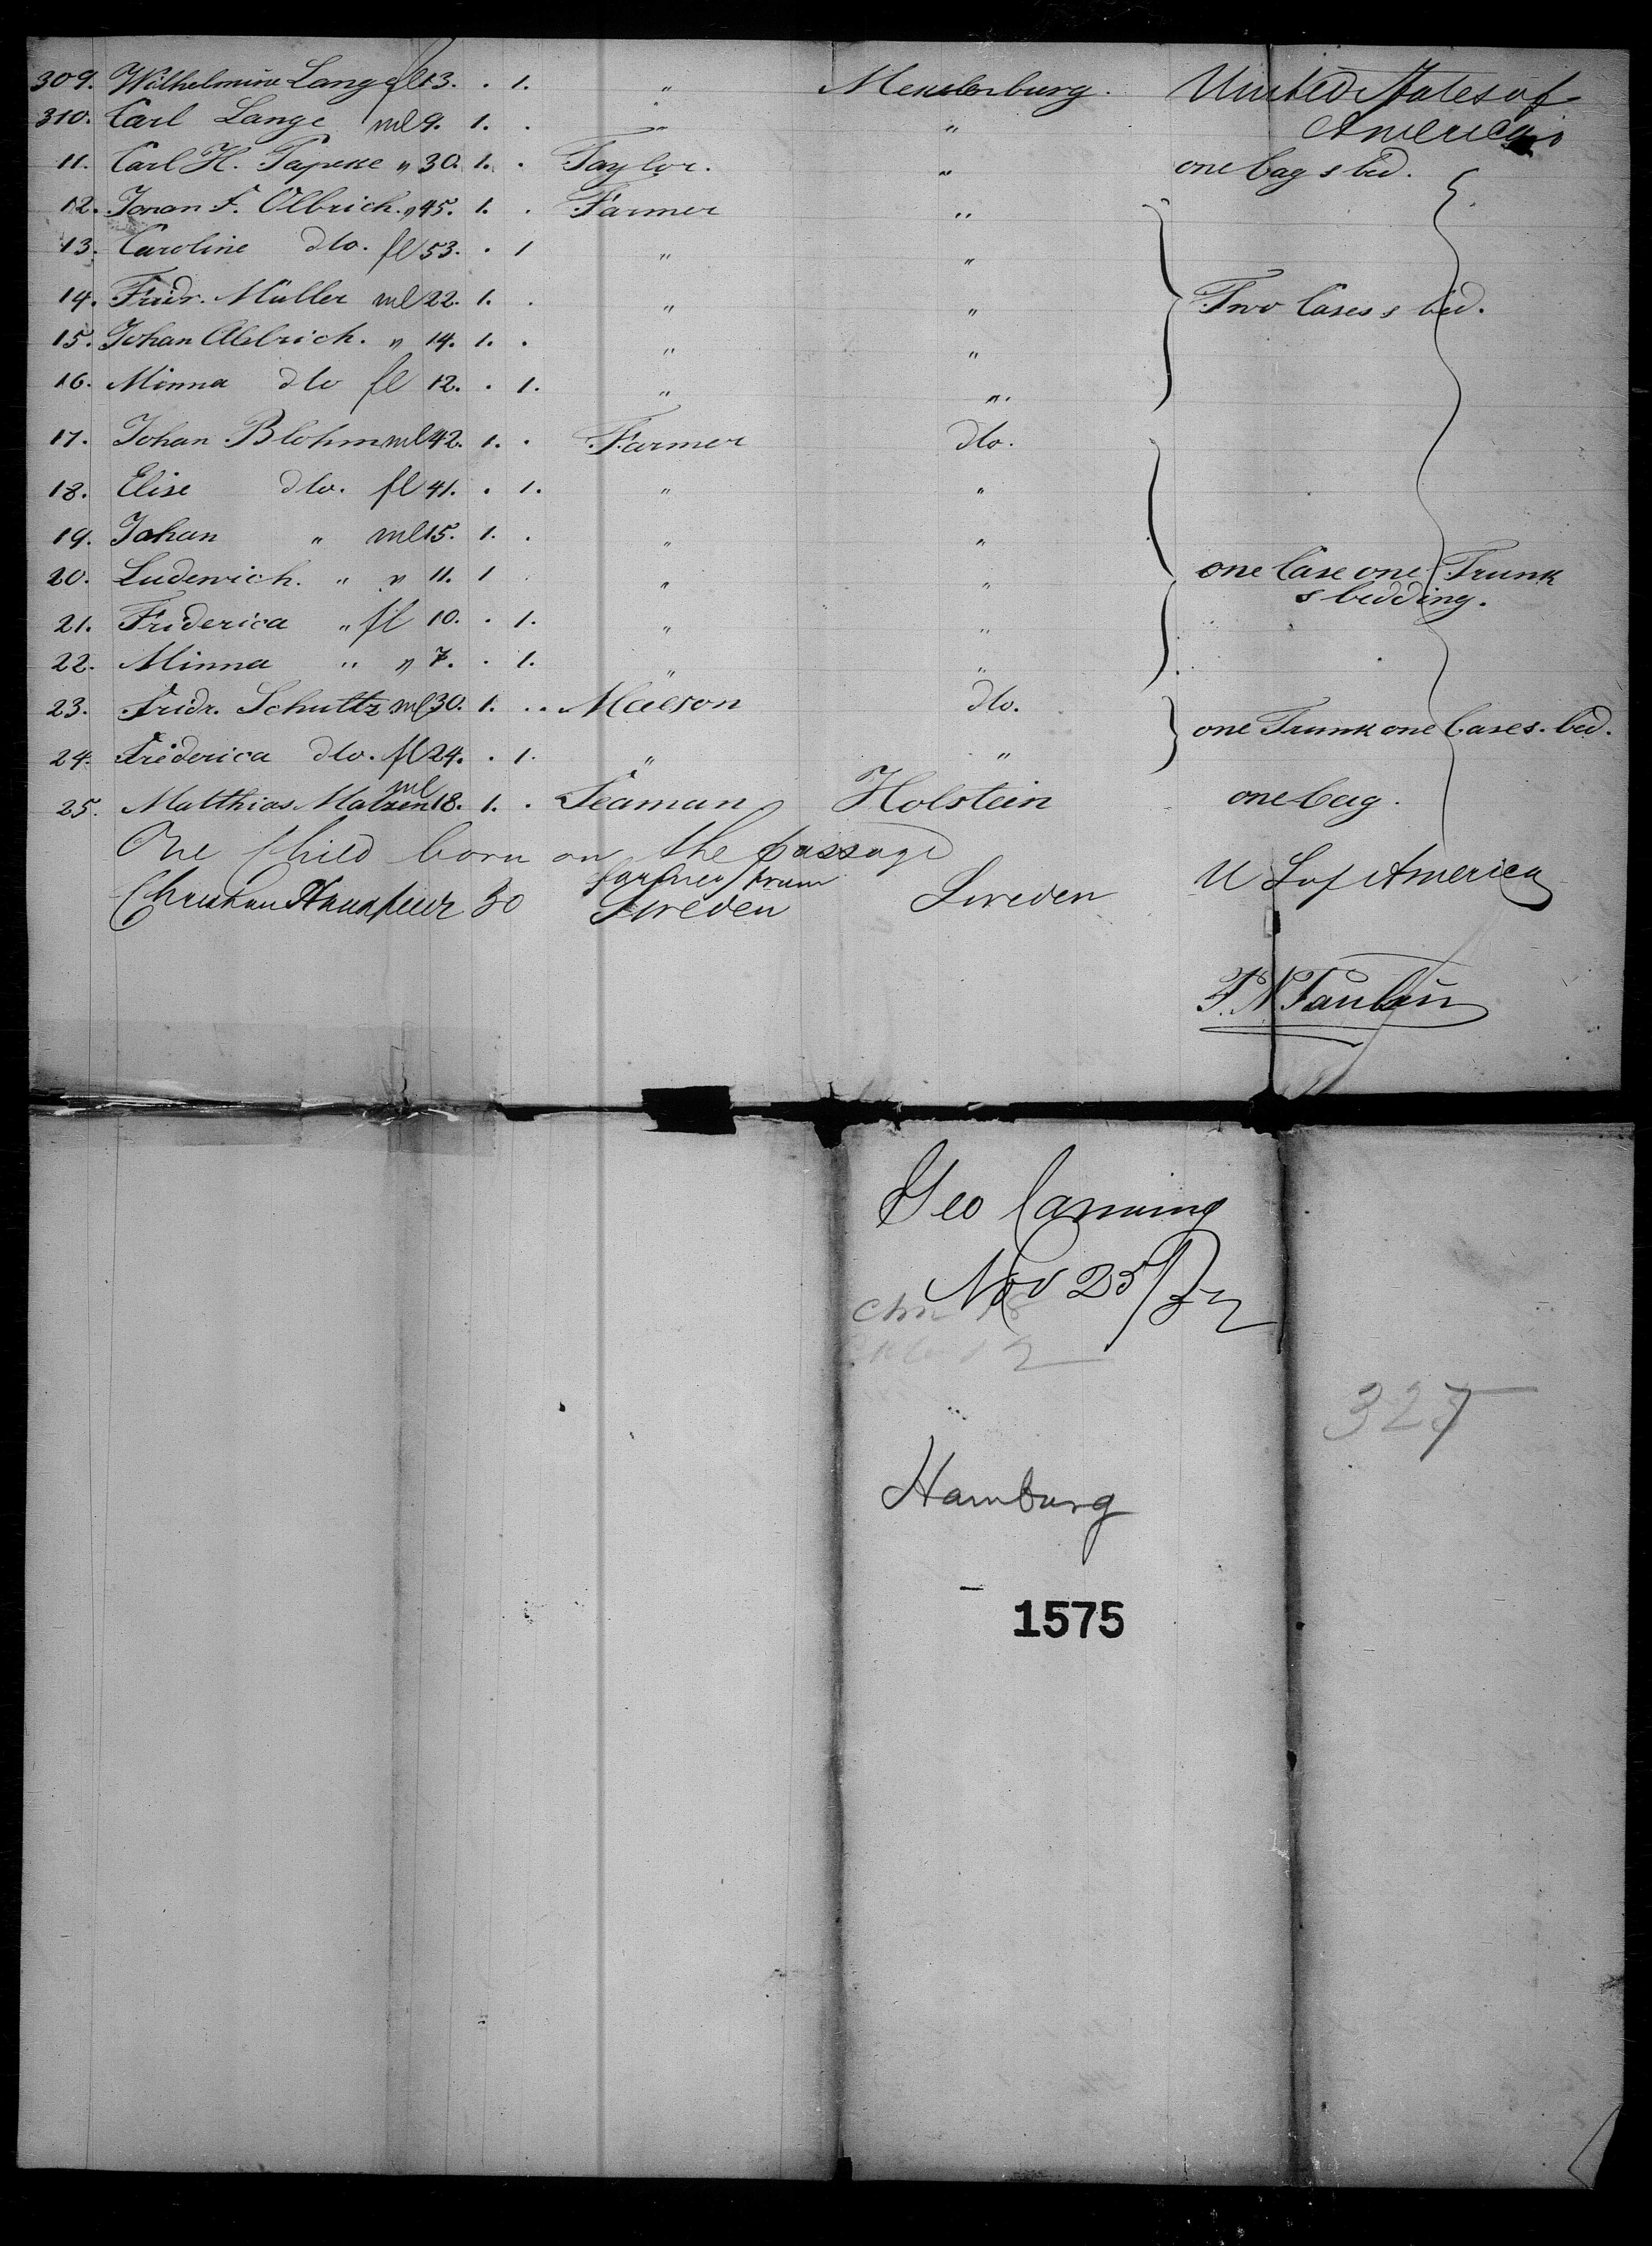 309. Wilhelmine Lange fl 13. . 1. " Meklenburg. United States of
America
310. Carl Lange ml 9. 1. . " "
11. Carl H. Papeke " 30. 1. . Taylor. " one bag & bed.
12. Johan F. Olbrich. " 45. 1. . Farmer "
13. Caroline dto. fl 53. . 1 " "
14. Fridr. Müller ml 22. 1. . " " Two Cases & bed.
15. Johan Olbrich. " 14. 1. . " "
16. Minna dto fl 12. . 1. " "
17. Johan Blohm ml 42. 1. . Farmer dto.
18. Elise dto. fl 41. . 1. " "
19. Johan " ml 15. 1. . " "
20. Ludewich. " " 11. 1 " " one Case one Trunk
& bedding.
21. Friderica " fl 10. . 1. " "
22. Minna " " 7. . 1. " "
23. Fridr. Schultz ml 30. 1. . Maeson dto. one Trunk one Case & bed.
24. Friderica dto. fl 24. . 1. " "
25. Matthias Matzen ml 18. 1. . Seaman Holstein one bag.
One Child born on the passage
Christian 30 from Sweden Sweden U S of America
Geo Canning
Nov 25/52
Hamburg
1575
327